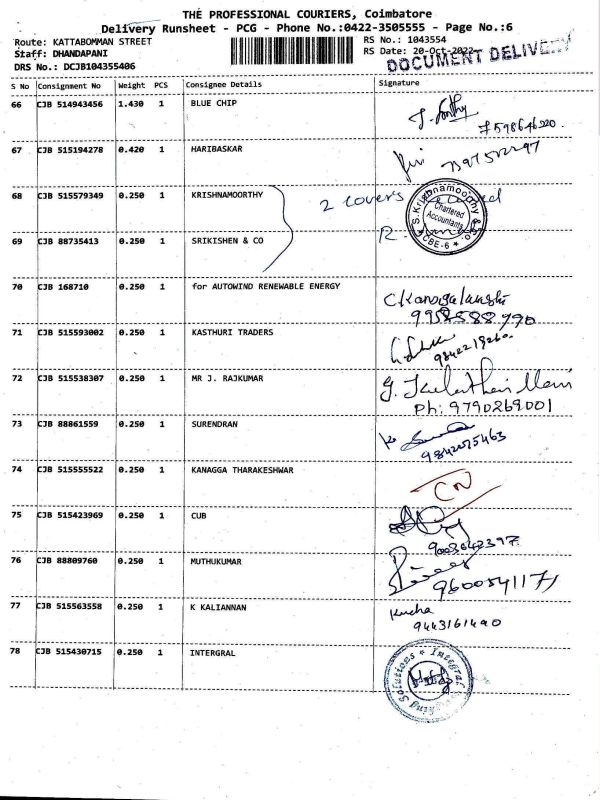 THE PROFESSIONAL COURIERS, Coimbatore
Delivery Runsheet - PCG - Phone No.:0422-3505555 - Page No.:6
Route: KATTABOMMAN STREET RS No.: 1043554
Staff: DHANDAPANI RS Date: 20-Oct-2022
DRS No.: DCJB104355406 DOCUMENT DELIVERY
S No Consignment No Weight PCS Consignee Details Signature
66 CJB 514943456 1.430 1 BLUE CHIP
67 CJB 515194278 0.420 1 HARIBASKAR
68 CJB 515579349 0.250 1 KRISHNAMOORTHY 2 covers
S. Krishnamoorthy & Co. Chartered Accountants CBE-6
69 CJB 88735413 0.250 1 SRIKISHEN & CO
70 CJB 168710 0.250 1 for AUTOWIND RENEWABLE ENERGY
71 CJB 515593002 0.250 1 KASTHURI TRADERS
72 CJB 515538307 0.250 1 MR J. RAJKUMAR
Ph: 9790269001
73 CJB 88861559 0.250 1 SURENDRAN
9842075463
74 CJB 515555522 0.250 1 KANAGGA THARAKESHWAR CN
75 CJB 515423969 0.250 1 CUB
9003642397
76 CJB 88809760 0.250 1 MUTHUKUMAR
9600541171
77 CJB 515563558 0.250 1 K KALIANNAN
9443161490
78 CJB 515430715 0.250 1 INTERGRAL
Integral Solutions